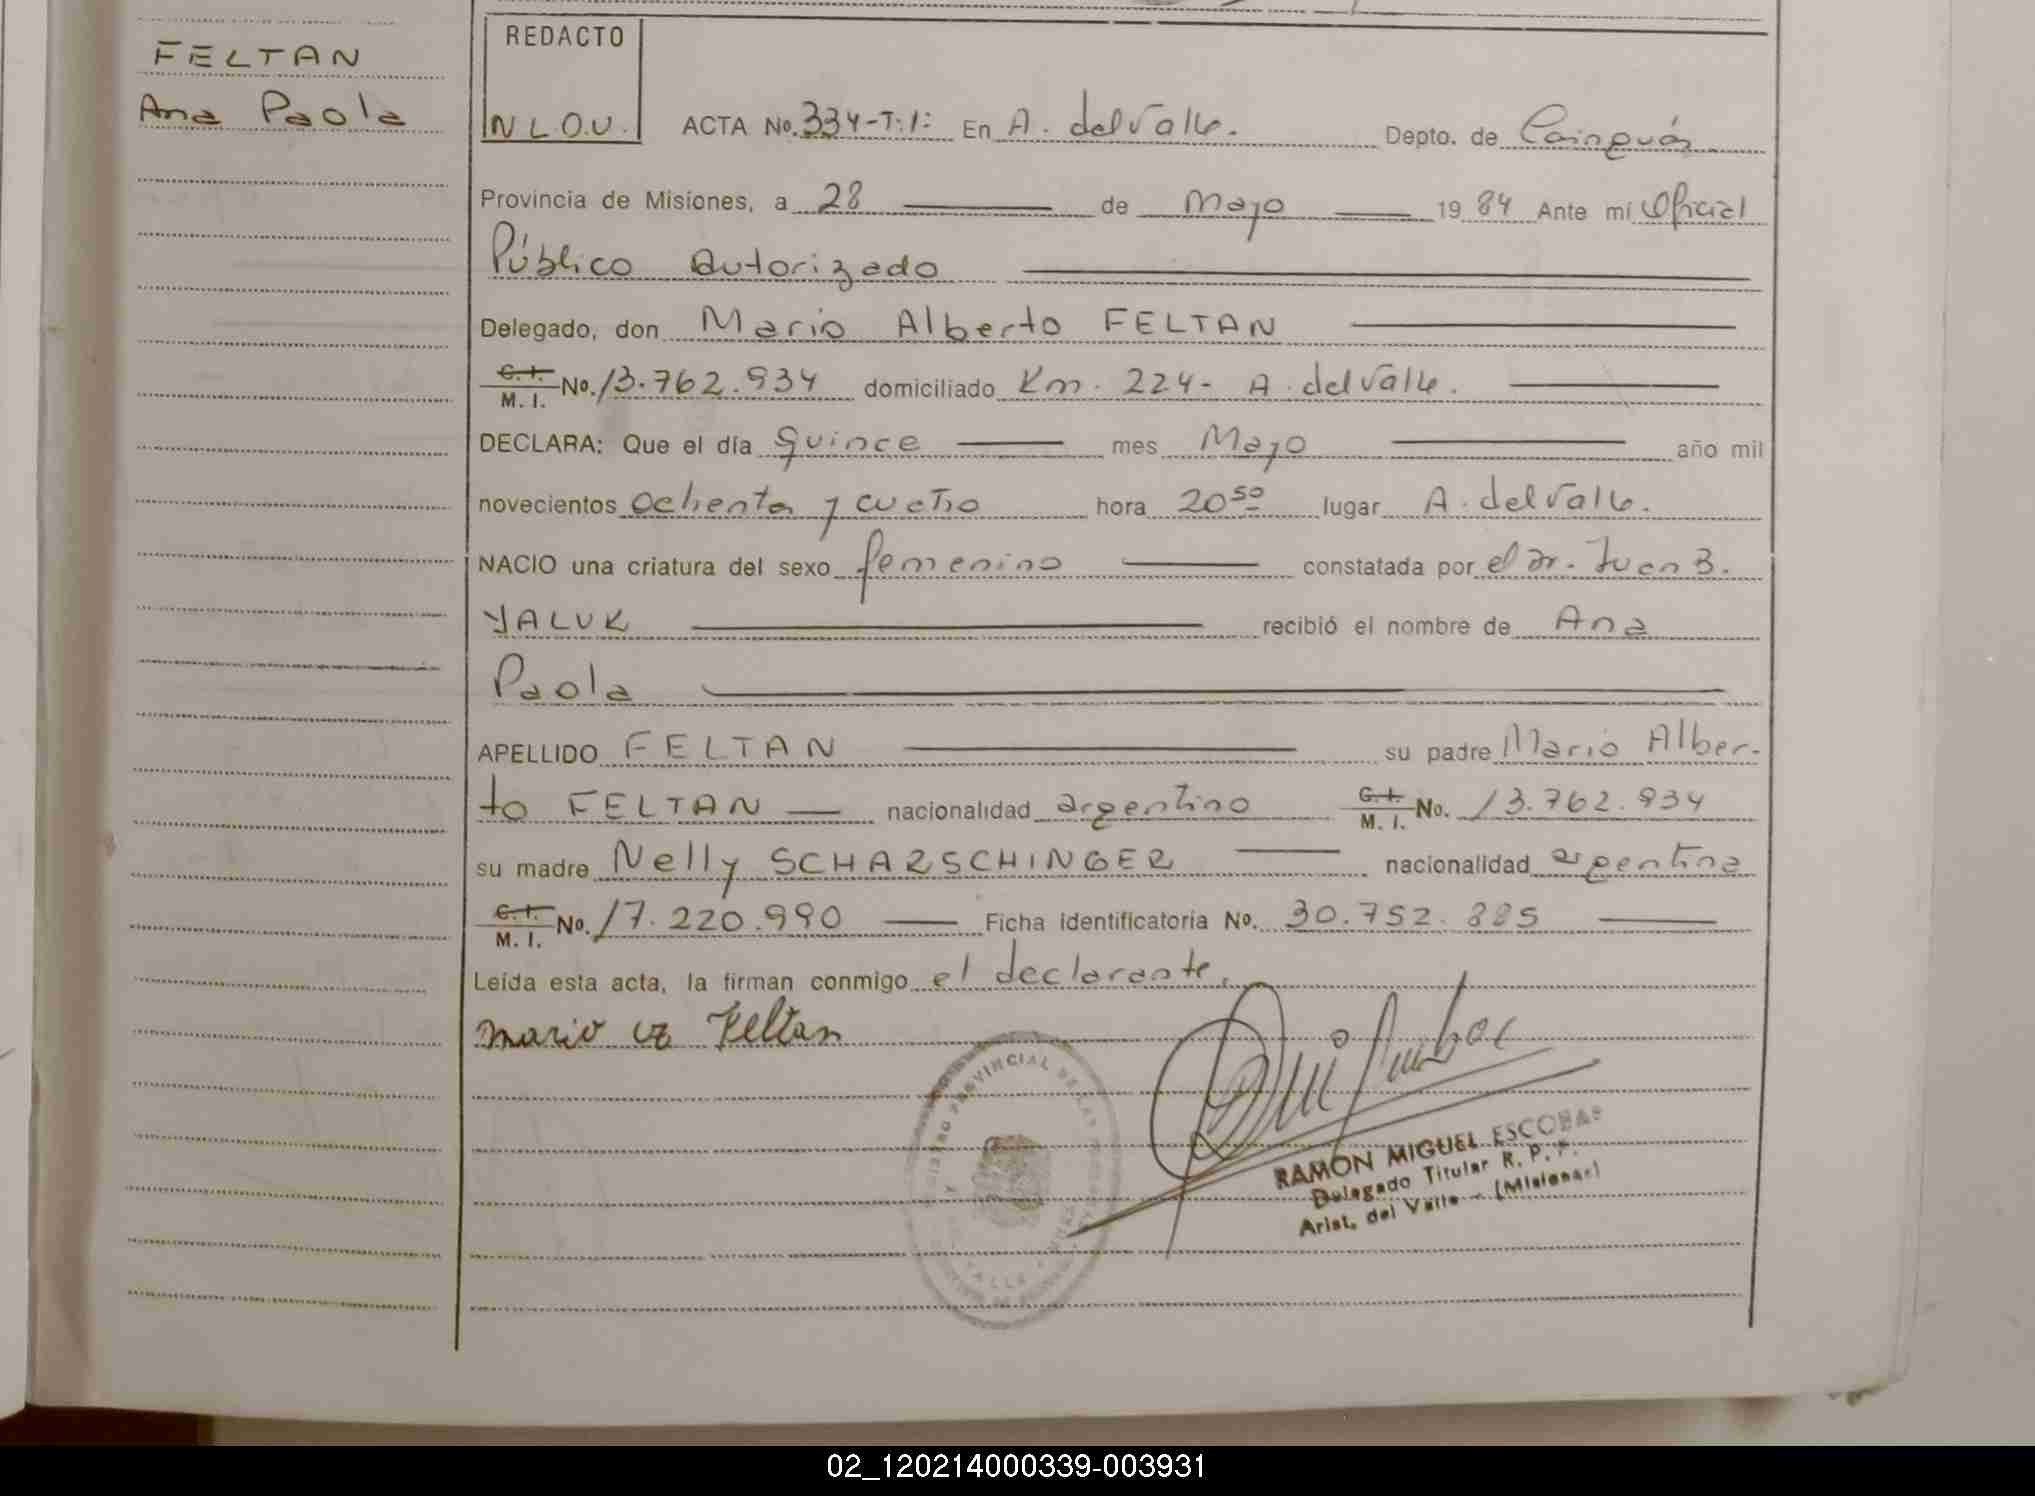 FELTAN
Ana Paola
REDACTO
N L.O.U.
ACTA No. 334-T:1: En A. del Valle. Depto. de Cainguás
Provincia de Misiones, a 28 de Mayo 1984 Ante mí Oficial
Público Autorizado
Delegado, don Mario Alberto FELTAN
C.I. M.I. No. 13.762.934 domiciliado Km. 224- A. del Valle.
DECLARA: Que el día quince mes Mayo año mil
novecientos ochenta y cuatro hora 20 50 lugar A. del Valle.
NACIO una criatura del sexo femenino constatada por el Dr. Juan B.
YALUK recibió el nombre de Ana
Paola
APELLIDO FELTAN su padre Mario Alber-
to FELTAN nacionalidad argentino C.I. M.I. No. 13.762.934
su madre Nelly SCHARSCHINGER nacionalidad argentina
C.I. M.I. No. 17.220.990 Ficha identificatoria No. 30.752.885
Leída esta acta, la firman conmigo el declarante.
Mario Feltan
PROVINCIAL DE LAS
RAMON MIGUEL ESCOBAR
Delegado Titular R. P. P.
Arist. del Valle - (Misiones)
02_120214000339-003931